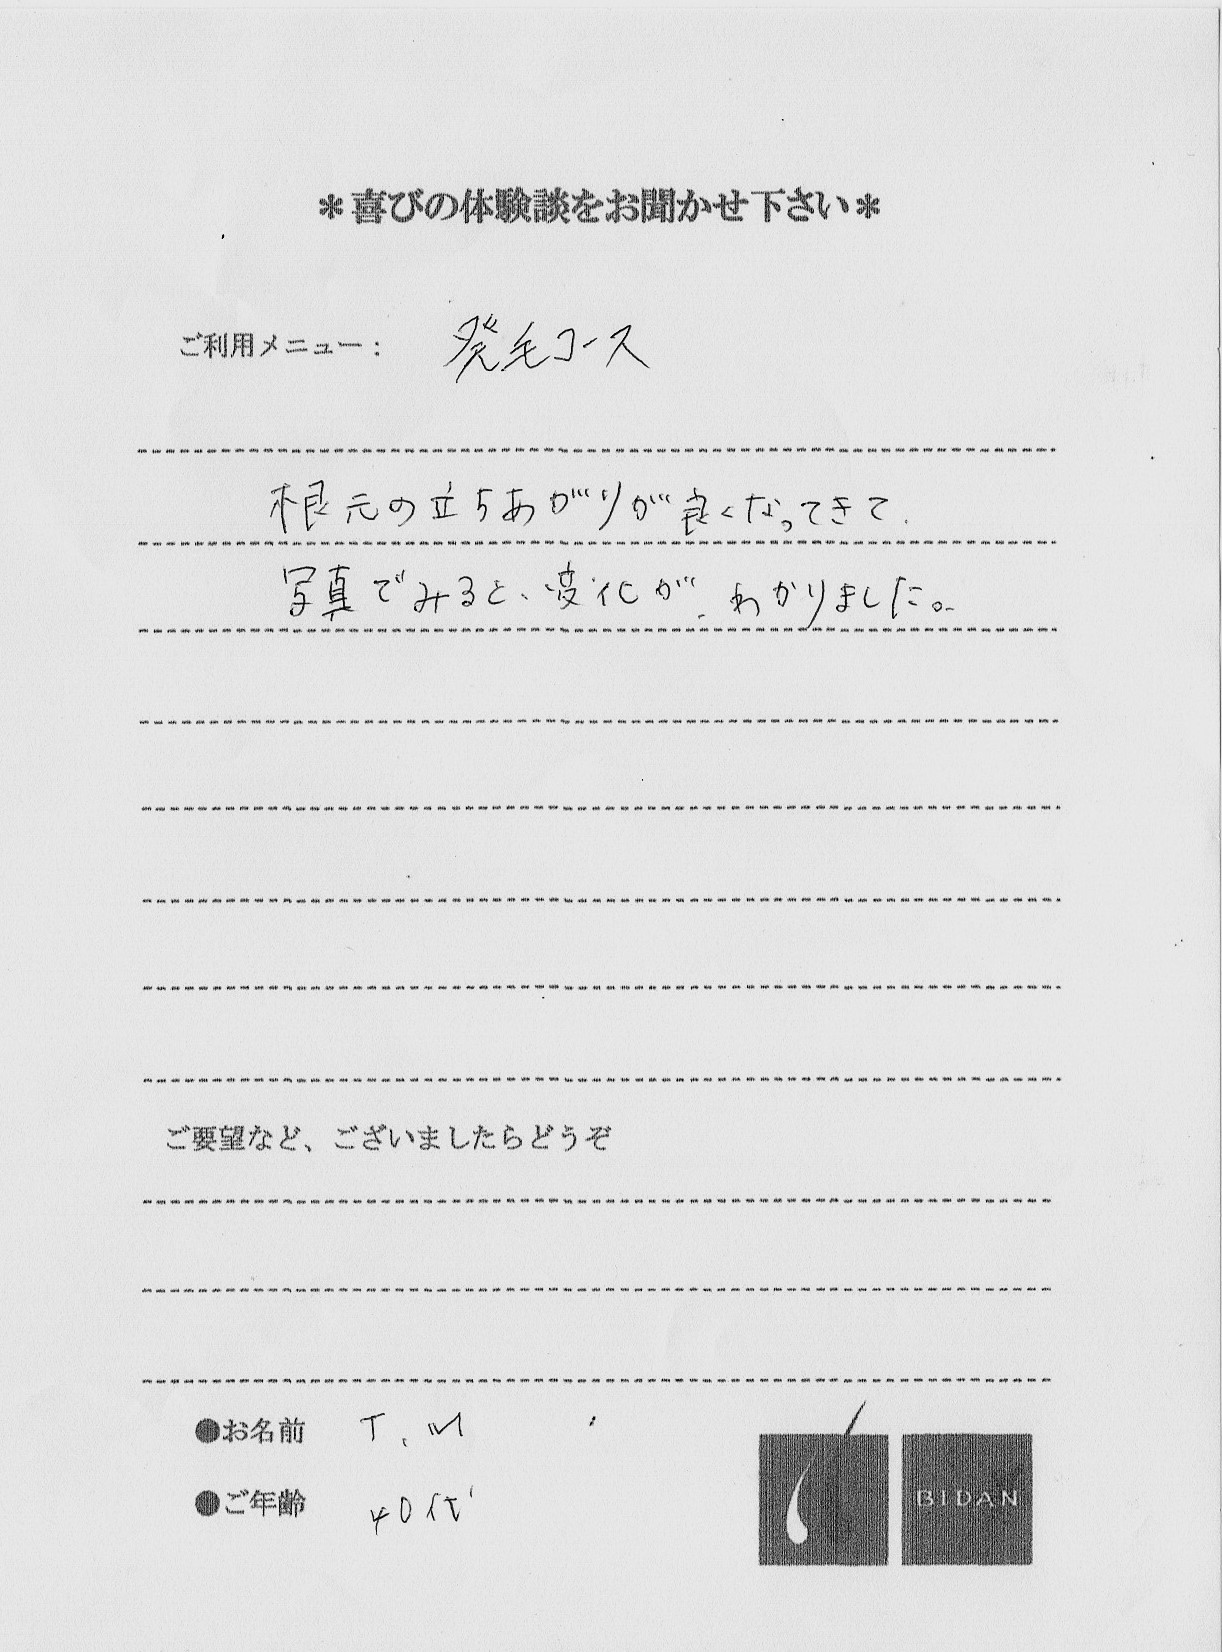 ＊喜びの体験談をお聞かせ下さい＊
ご利用メニュー： 発毛コース
根元の立ちあがりが良くなってきて、
写真でみると、変化が、わかりました。
ご要望など、ございましたらどうぞ
●お名前 T.M
●ご年齢 40代
BIDAN